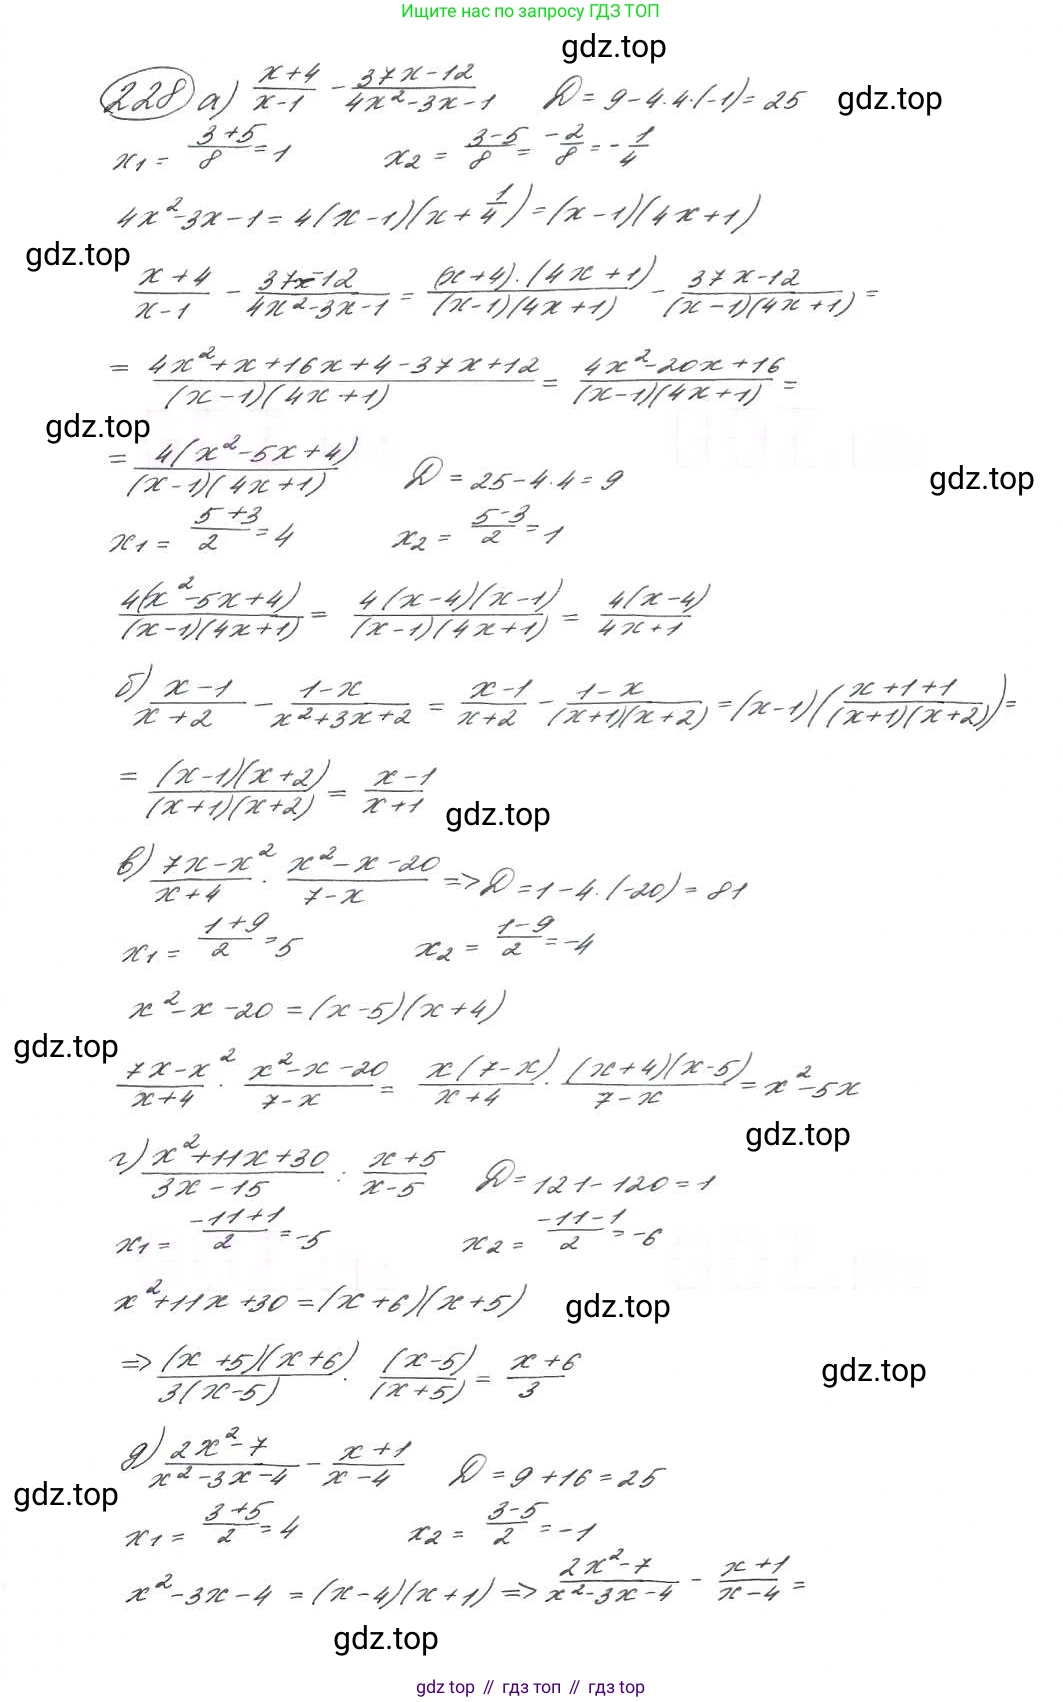 Ищите нас по запросу ГДЗ ТОП
gdz.top
228 а) (x+4)/(x-1) - (37x-12)/(4x²-3x-1) D = 9-4·4·(-1) = 25 gdz.top
x₁ = (3+5)/8 = 1 x₂ = (3-5)/8 = -2/8 = -1/4
4x²-3x-1 = 4(x-1)(x+1/4) = (x-1)(4x+1)
gdz.top
(x+4)/(x-1) - (37x-12)/(4x²-3x-1) = (x+4)·(4x+1)/(x-1)(4x+1) - (37x-12)/(x-1)(4x+1) =
= (4x²+x+16x+4-37x+12)/(x-1)(4x+1) = (4x²-20x+16)/(x-1)(4x+1) =
gdz.top
= 4(x²-5x+4)/(x-1)(4x+1) D = 25-4·4 = 9 gdz.top
x₁ = (5+3)/2 = 4 x₂ = (5-3)/2 = 1
4(x²-5x+4)/(x-1)(4x+1) = 4(x-4)(x-1)/(x-1)(4x+1) = 4(x-4)/(4x+1)
б) (x-1)/(x+2) - (1-x)/(x²+3x+2) = (x-1)/(x+2) - (1-x)/(x+1)(x+2) = (x-1)((x+1+1)/(x+1)(x+2)) =
= (x-1)(x+2)/(x+1)(x+2) = (x-1)/(x+1)
gdz.top
в) (7x-x²)/(x+4) · (x²-x-20)/(7-x) => D = 1-4·(-20) = 81
x₁ = (1+9)/2 = 5 x₂ = (1-9)/2 = -4
x²-x-20 = (x-5)(x+4)
gdz.top
(7x-x²)/(x+4) · (x²-x-20)/(7-x) = x(7-x)/(x+4) · (x+4)(x-5)/(7-x) = x²-5x
gdz.top
г) (x²+11x+30)/(3x-15) : (x+5)/(x-5) D = 121-120 = 1
x₁ = (-11+1)/2 = -5 x₂ = (-11-1)/2 = -6
x²+11x+30 = (x+6)(x+5) gdz.top
=> (x+5)(x+6)/3(x-5) · (x-5)/(x+5) = (x+6)/3 gdz.top
д) (2x²-7)/(x²-3x-4) - (x+1)/(x-4) D = 9+16 = 25
gdz.top
x₁ = (3+5)/2 = 4 x₂ = (3-5)/2 = -1
x²-3x-4 = (x-4)(x+1) => (2x²-7)/(x²-3x-4) - (x+1)/(x-4) =
gdz.top
gdz top // гдз топ // гдз top